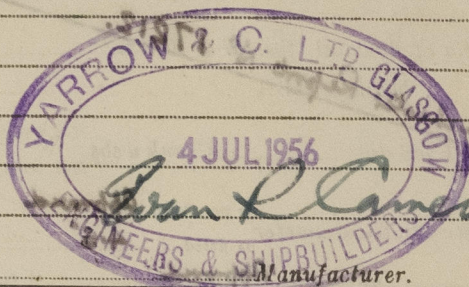 YARROW & C. LTD GLASGOW
4 JUL 1956
ENGINEERS & SHIPBUILDERS
Manufacturer.